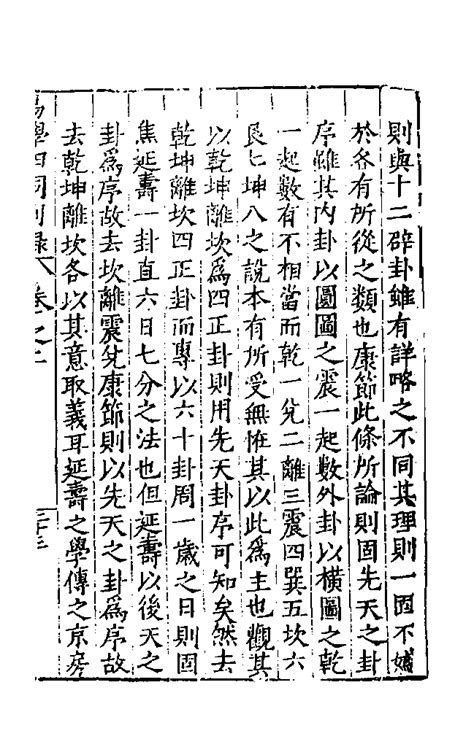 則與十二辟卦雖有詳略之不同其理則一固不妨
於各有所從之類也康節此條所論則固先天之卦
序雖其内卦以圓圖之震一起數外卦以橫圖之乾
一起數有不相當而乾一兌二離三震四巽五坎六
艮七坤八之說本有所受無惟其以此為主也觀其
以乾坤離坎為四正卦則用先天卦序可知矣然去
乾坤離坎四正卦而專以六十卦周一歲之日則固
焦延壽一卦直六日七分之法也但延壽以後天之
卦為序故去坎離震兌康節則以先天之卦為序故
去乾坤離坎各以其意取義耳延壽之學傳之京房
易學四同別錄 卷之二